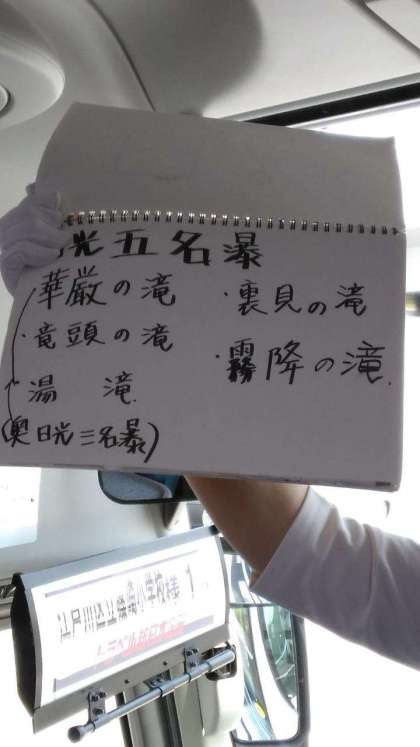 光五名暴
華厳の滝
・竜頭の滝
湯 滝
(奥日光三名暴)
・裏見の滝
・霧降の滝
江戸川区立 小学校 1